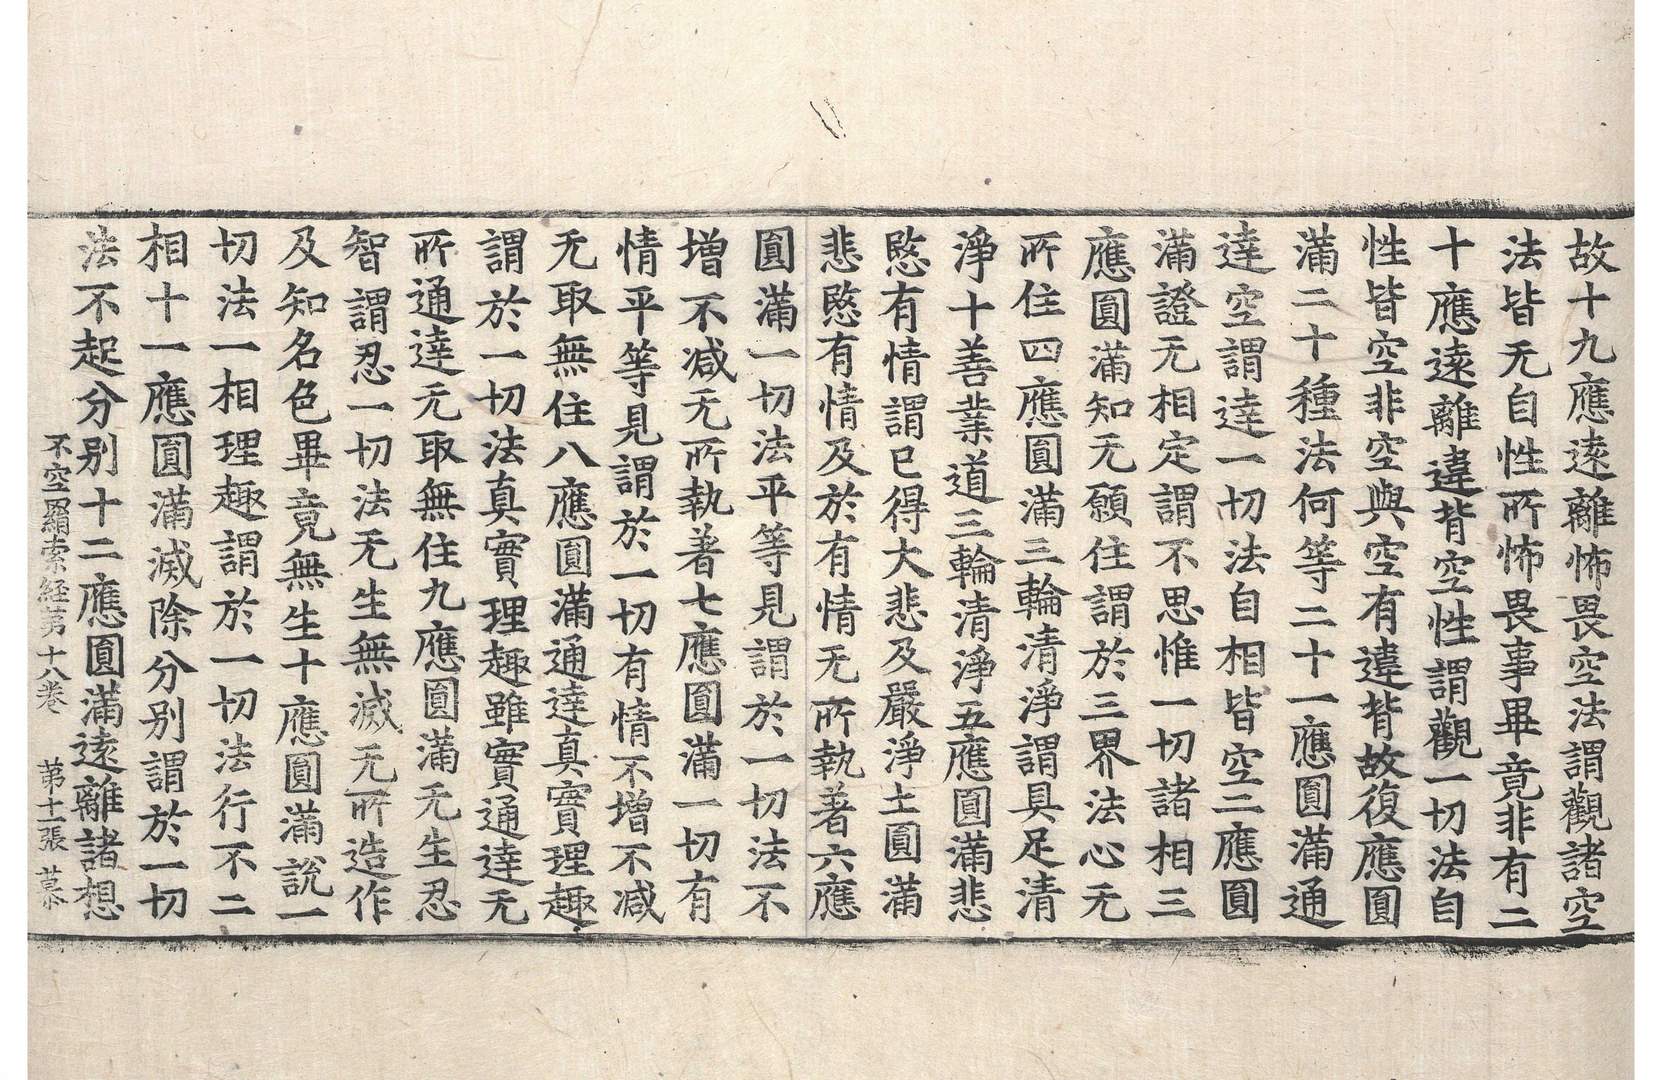 故十九應遠離怖畏空法謂觀諸空
法皆无自性所怖畏事畢竟非有二
十應遠離違背空性謂觀一切法自
性皆空非空與空有違背故復應圓
滿二十種法何等二十一應圓滿通
達空謂達一切法自相皆空二應圓
滿證无相定謂不思惟一切諸相三
應圓滿知无願住謂於三界法心无
所住四應圓滿三輪清淨謂具足清
淨十善業道三輪清淨五應圓滿悲
愍有情謂已得大悲及嚴淨土圓滿
悲愍有情及於有情无所執著六應
圓滿一切法平等見謂於一切法不
增不减无所執著七應圓滿一切有
情平等見謂於一切有情不增不减
无取無住八應圓滿通達真實理趣
謂於一切法真實理趣雖實通達无
所通達无取無住九應圓滿无生忍
智謂忍一切法无生無滅无所造作
及知名色畢竟無生十應圓滿說一
切法一相理趣謂於一切法行不二
相十一應圓滿滅除分別謂於一切
法不起分別十二應圓滿遠離諸想
不空羂索経苐十八巻 苐十一張 慕